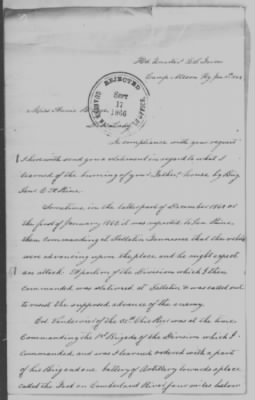 Camp Nelson Ky Jan
REJECTED
SEPT
11
Miss Annie
Dear Lady
In compliance with your request
I herewith send you a statement in regard to what I
learned of the burning of your Father's house by Brig
Genl E A Paine.
Sometime in the latter part of December 1862 or
the first of January 1863 it was reported to Gen Paine,
then commanding at Gallatin Tennessee that the rebels
were advancing upon the place and he might expect
an attack. A portion of the division which I then
commanded was at Gallatin & was called out
to resist the supposed advance of the enemy.
Col of the Ohio was at the time
Commanding the Brigade of the Division which I
commanded, and was I learned ordered with a part
of his Brigade one battery of Artillery towards a place
called the on Cumberland River four miles below